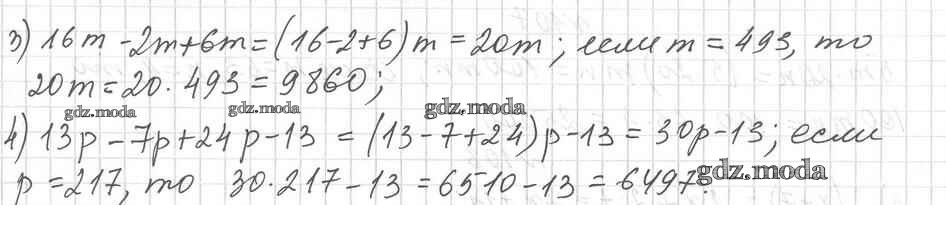 3) 16m - 2m + 6m = (16 - 2 + 6) m = 20m ; если m = 493, то
20m = 20 · 493 = 9860;
gdz.moda gdz.moda gdz.moda
4) 13p - 7p + 24p - 13 = (13 - 7 + 24) p - 13 = 30p - 13; если
p = 217, то 30 · 217 - 13 = 6510 - 13 = 6497.
gdz.moda